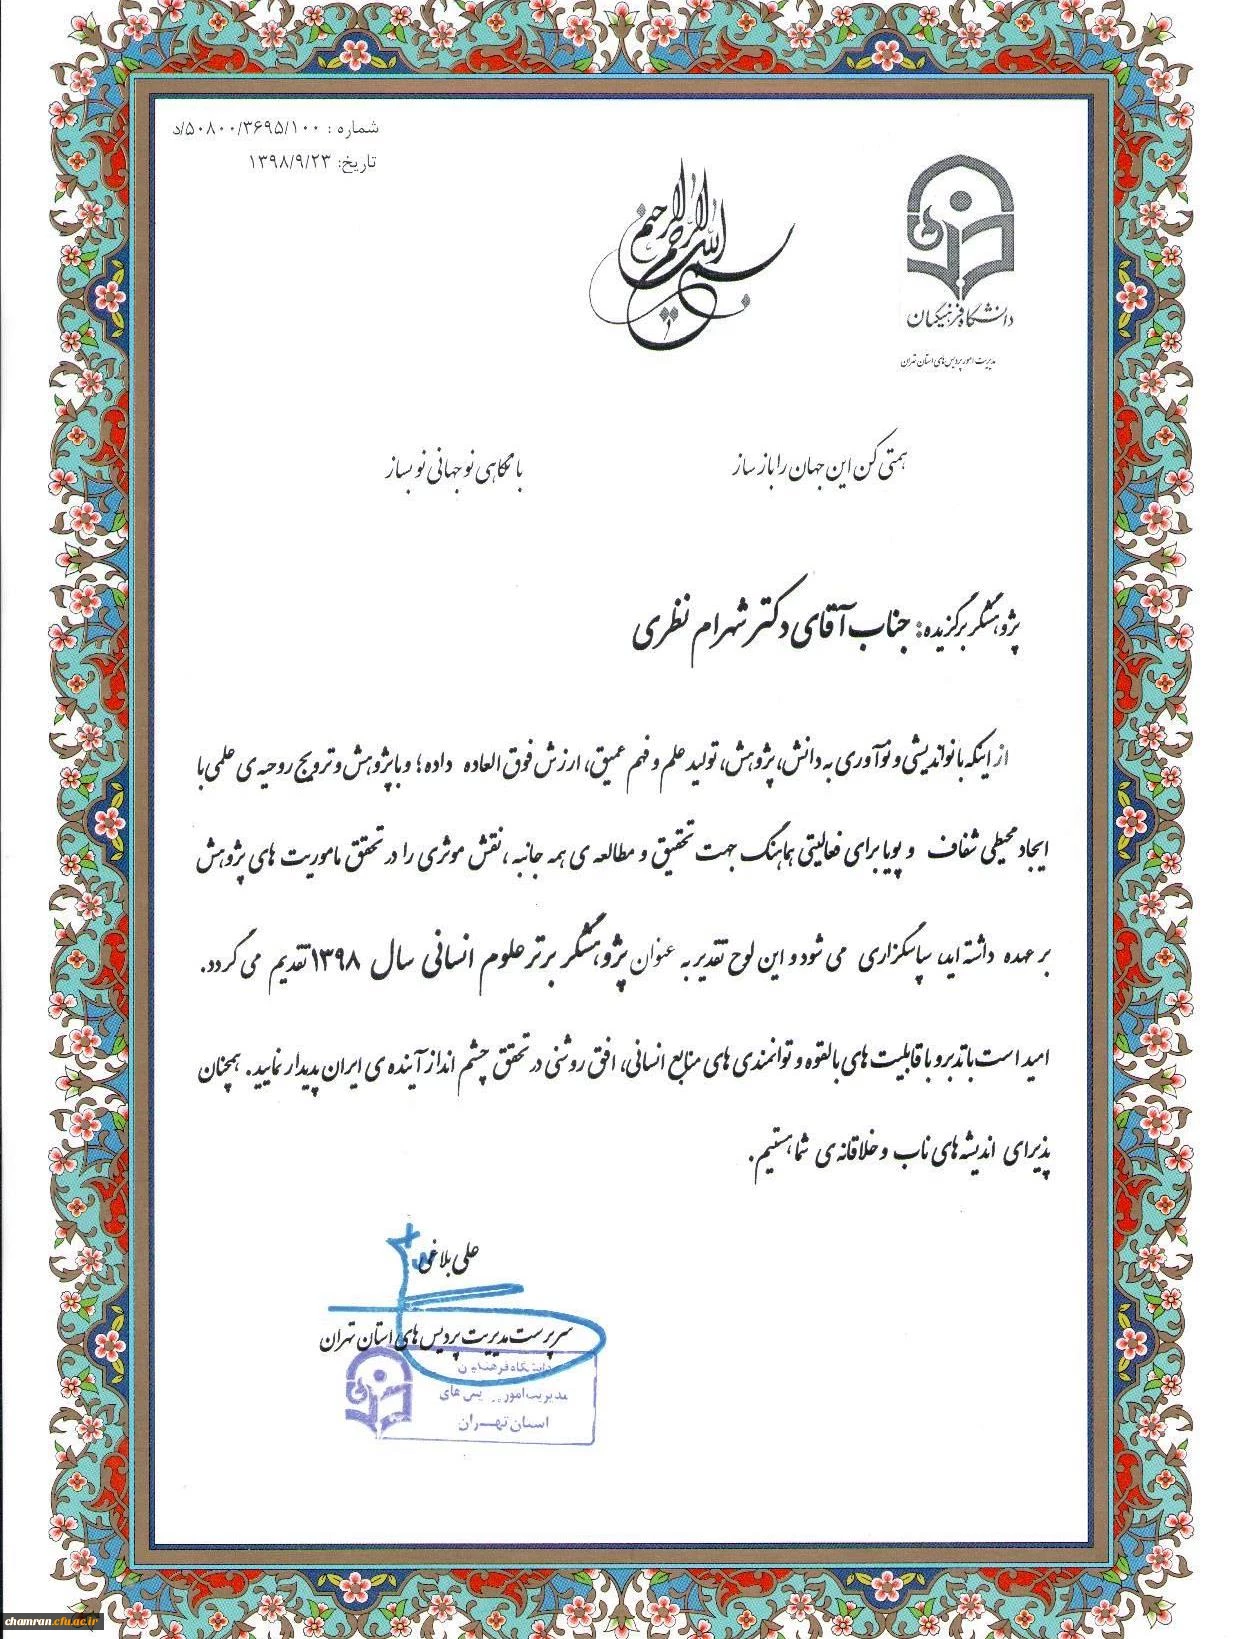 شماره : ۵۰۸۰۰/۳۶۹۵/۱۰۰/د
تاریخ: ۱۳۹۸/۹/۲۳
بسم الله الرحمن الرحیم
دانشگاه فرهنگیان
مدیریت امور پردیس های استان تهران
همتی کن این جهان را باز ساز
با نگاهی نو جهانی نو بساز
پژوهشگر برگزیده: جناب آقای دکتر شهرام نظری
از اینکه با نواندیشی و نوآوری به دانش، پژوهش، تولید علم و فهم عمیق، ارزش فوق العاده داده؛ و با پژوهش و ترویج روحیه ی علمی با
ایجاد محیطی شفاف و پویا برای فعالیتی هماهنگ جهت تحقیق و مطالعه ی همه جانبه ، نقش موثری را در تحقق ماموریت های پژوهش
بر عهده داشته اید، سپاسگزاری می شود و این لوح تقدیر به عنوان پژوهشگر برتر علوم انسانی سال ۱۳۹۸ تقدیم می گردد.
امید است با تدبر و با قابلیت های بالقوه و توانمندی های منابع انسانی، افق روشنی در تحقق چشم انداز آینده ی ایران پدیدار نمایید. همچنان
پذیرای اندیشه های ناب و خلاقانه ی شما هستیم.
علی بلاغی
سرپرست مدیریت پردیس های استان تهران
دانشگاه فرهنگیان
مدیریت امور پردیس های
استان تهران
chamran.cfu.ac.ir